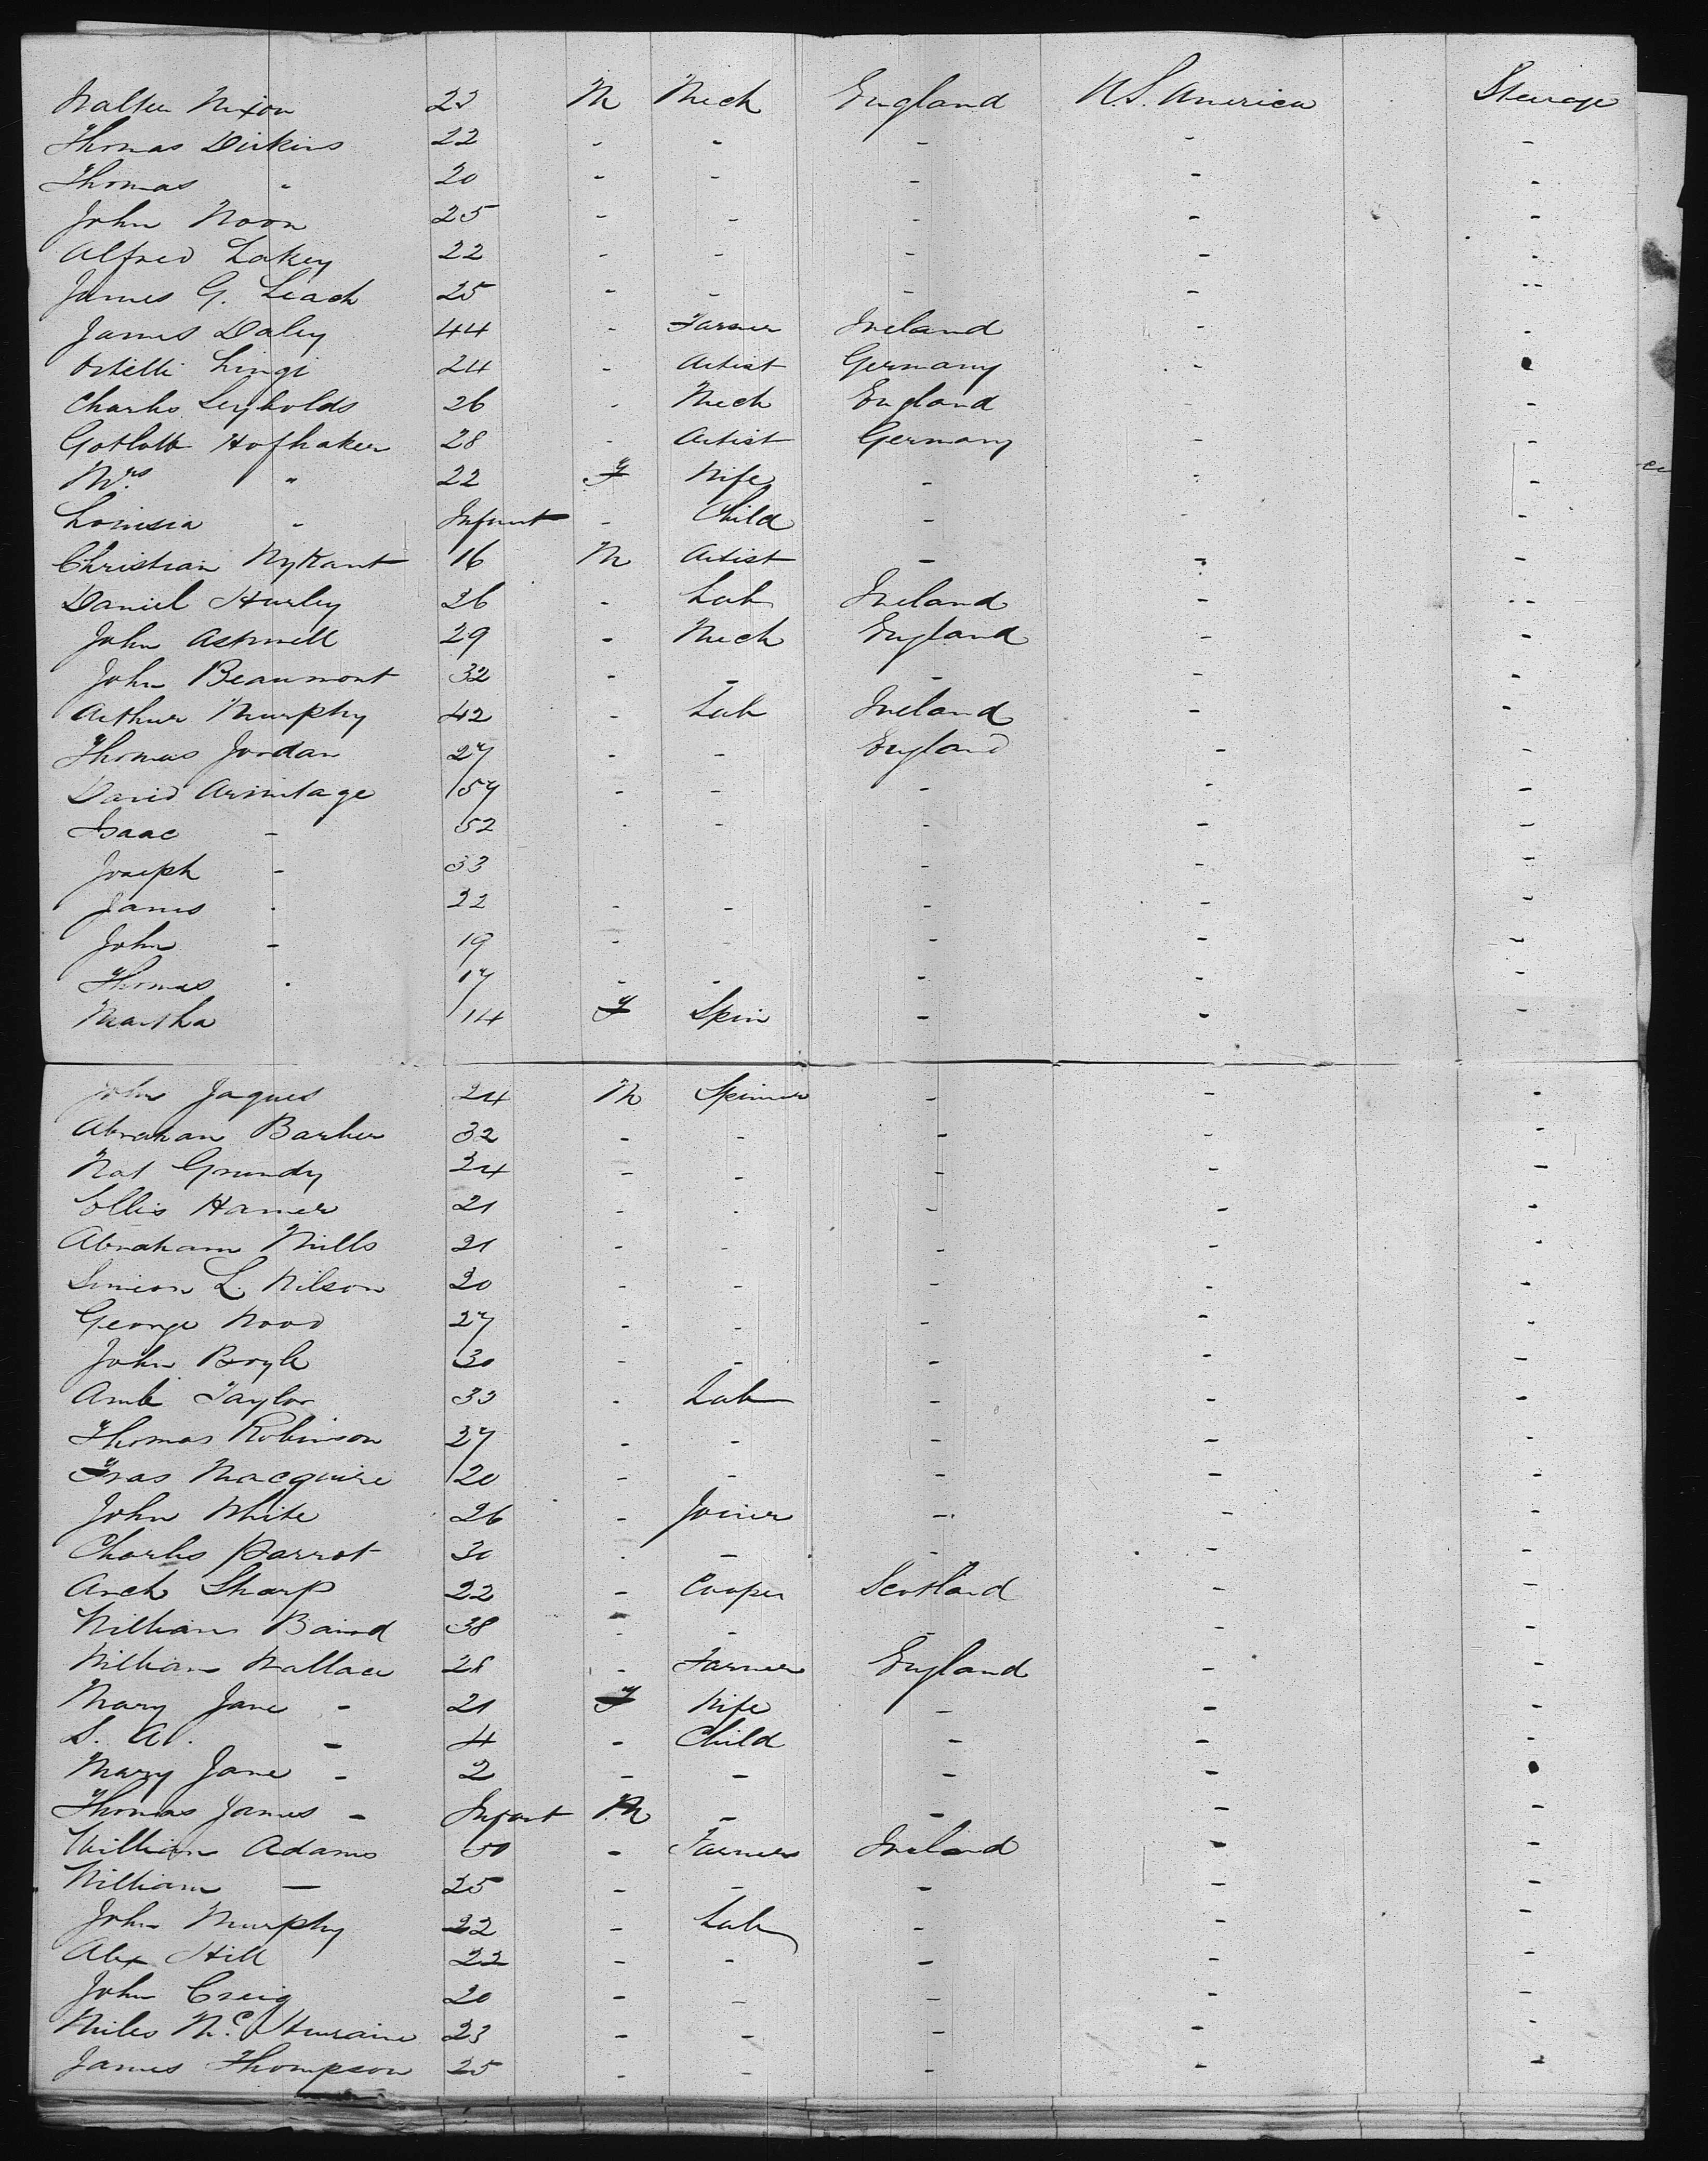 Walter Nixon 23 M Mech England U.S. America Steerage
Thomas Dirkins 22 - - - - -
Thomas " 20 - - - - -
John Noon 25 - - - - -
Alfred Lakey 22 - - - - -
James G. Leach 25 - - - - -
James Daley 44 - Farmer Ireland - -
Lingi 24 - Artist Germany - -
Charles Leybolds 26 - Mech England - -
Hofhaker 28 - Artist Germany - -
Mrs " 22 F Wife - - -
Louisia " Infant - Child - - -
Christian 16 M Artist - - -
Daniel Hurley 26 - Lab Ireland - -
John Astwell 29 - Mech England - -
John Beaumont 32 - - - - -
Arthur Murphy 42 - Lab Ireland - -
Thomas Jordan 27 - - England - -
David Armitage 57 - - - - -
Isaac - 52 - - - - -
Joseph - 33 - - -
James - 22 - - - - -
John - 19 - - - - -
Thomas - 17 - - - - -
Martha 14 F Spin - - -
John Jaques 24 M Spinner - - -
Abraham Barber 32 - - - - -
Nat Grundy 24 - - - - -
Ellis Hamer 21 - - - - -
Abraham Mills 21 - - - - -
Simeon L. Wilson 20 - - - - -
George Wood 27 - - - - -
John Boyle 30 - - - - -
Amb Taylor 33 - Lab - - -
Thomas Robinson 27 - - - - -
Fras Macguire 20 - - - - -
John White 26 - Joiner - - -
Charles Parrot 30 - - - - -
Arch Sharp 22 - Cooper Scotland - -
William Baird 38 - - - - -
William Wallace 28 - Farmer England - -
Mary Jane - 21 F Wife - - -
S. A. - 4 - Child - - -
Mary Jane - 2 - - - - -
Thomas James - Infant M - - - -
William Adams 50 - Farmer Ireland - -
William - 25 - - - - -
John Murphy 22 - Lab - - -
Alex Hill 22 - - - - -
John Creig 20 - - - - -
Miles Mc 23 - - - - -
James Thompson 25 - - - - -